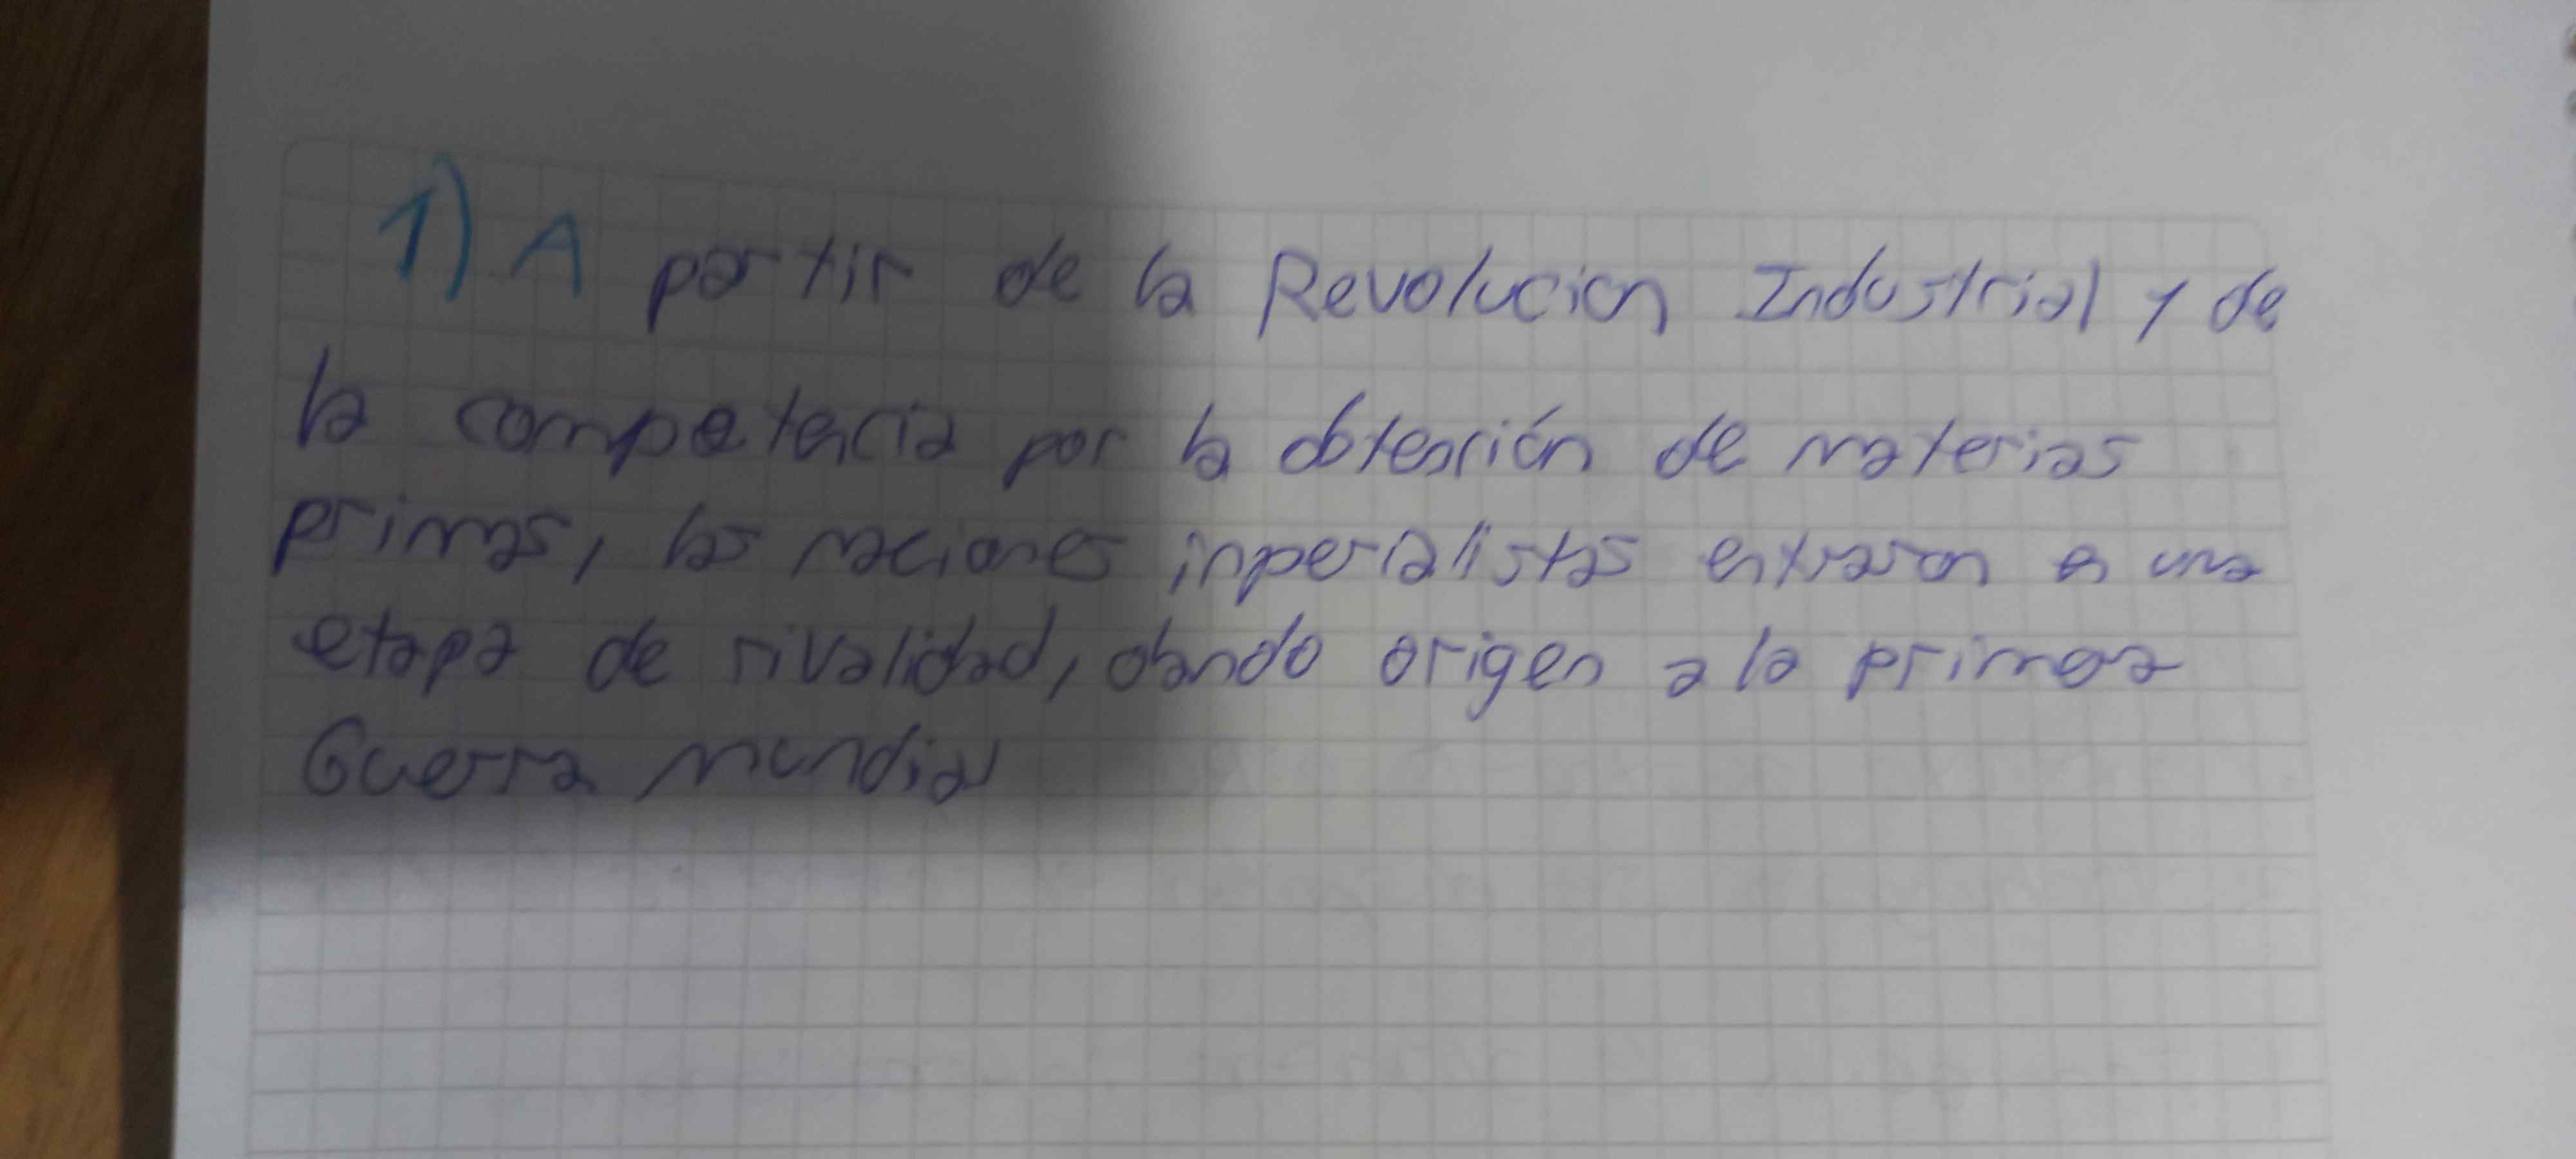 1) A partir de la Revolucion Industrial y de
la competencia por la obtención de materias
primas, las naciones inperialistas entraron en una
etapa de rivalidad, dando origen a la primera
Guerra mundial